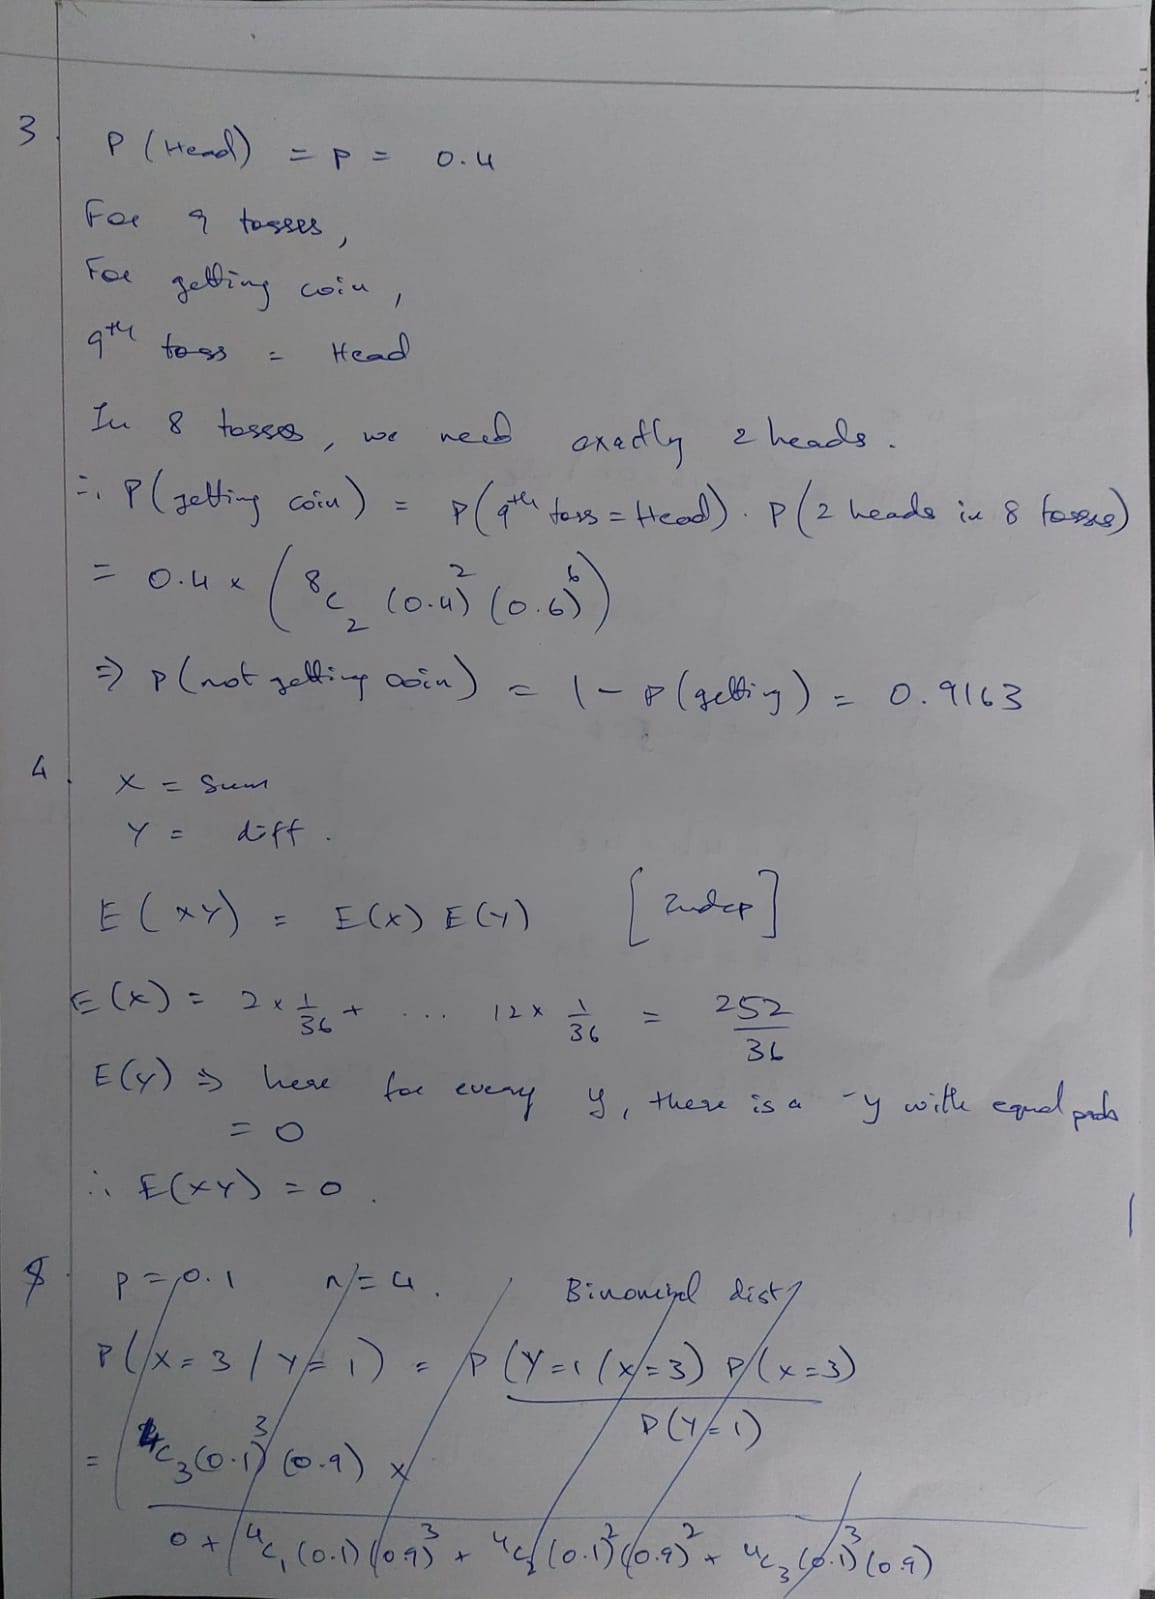 3. P (Head) = P = 0.4
For 9 tosses,
For getting coin,
9th toss = Head
In 8 tosses, we need exactly 2 heads.
∴ P(getting coin) = P(9th toss = Head). P(2 heads in 8 tosses)
= 0.4 x (⁸C₂ (0.4)² (0.6)⁶)
⇒ P(not getting coin) = 1 - P(getting) = 0.9163
4. X = Sum
Y = diff.
E(XY) = E(X) E(Y) [Indep]
E(X) = 2 x 1/36 + ... 12 x 1/36 = 252/36
E(Y) ⇒ here for every y, there is a -y with equal prob
= 0
∴ E(XY) = 0.
P = 0.1 n = 4. Binomial dist
P(X = 3 / Y = 1) = P(Y=1 (X=3) P(X=3)
P(Y=1)
= ⁴C₃(0.1)³ (0.9) x
0 + ⁴C₁ (0.1) (0.9)³ + ⁴C₂ (0.1)² (0.9)² + ⁴C₃ (0.1)³ (0.9)